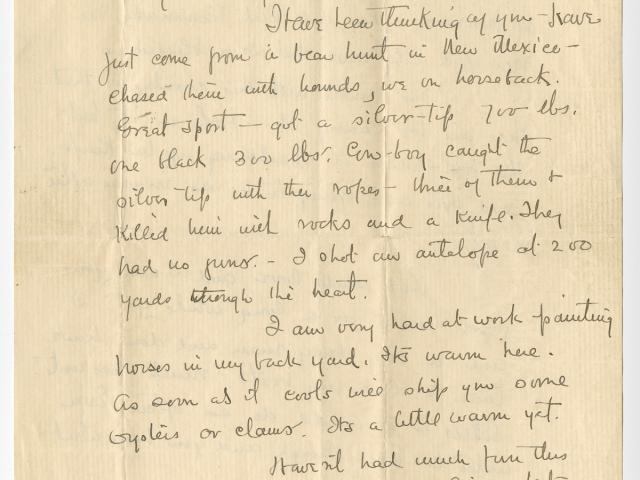 I have been thinking of you - have
just come from a bear hunt in New Mexico -
chased them with hounds, we on horseback.
Great sport - got a silver-tip 700 lbs.
one black 300 lbs. Cow-boy caught the
silver tip with their ropes - three of them &
killed him with rocks and a knife. They
had no guns. - I shot an antelope at 200
yards through the heart.
I am very hard at work painting
horses in my back yard. Its warm here.
As soon as it cools will ship you some
oysters or clams. Its a little warm yet.
Haven't had much fun this